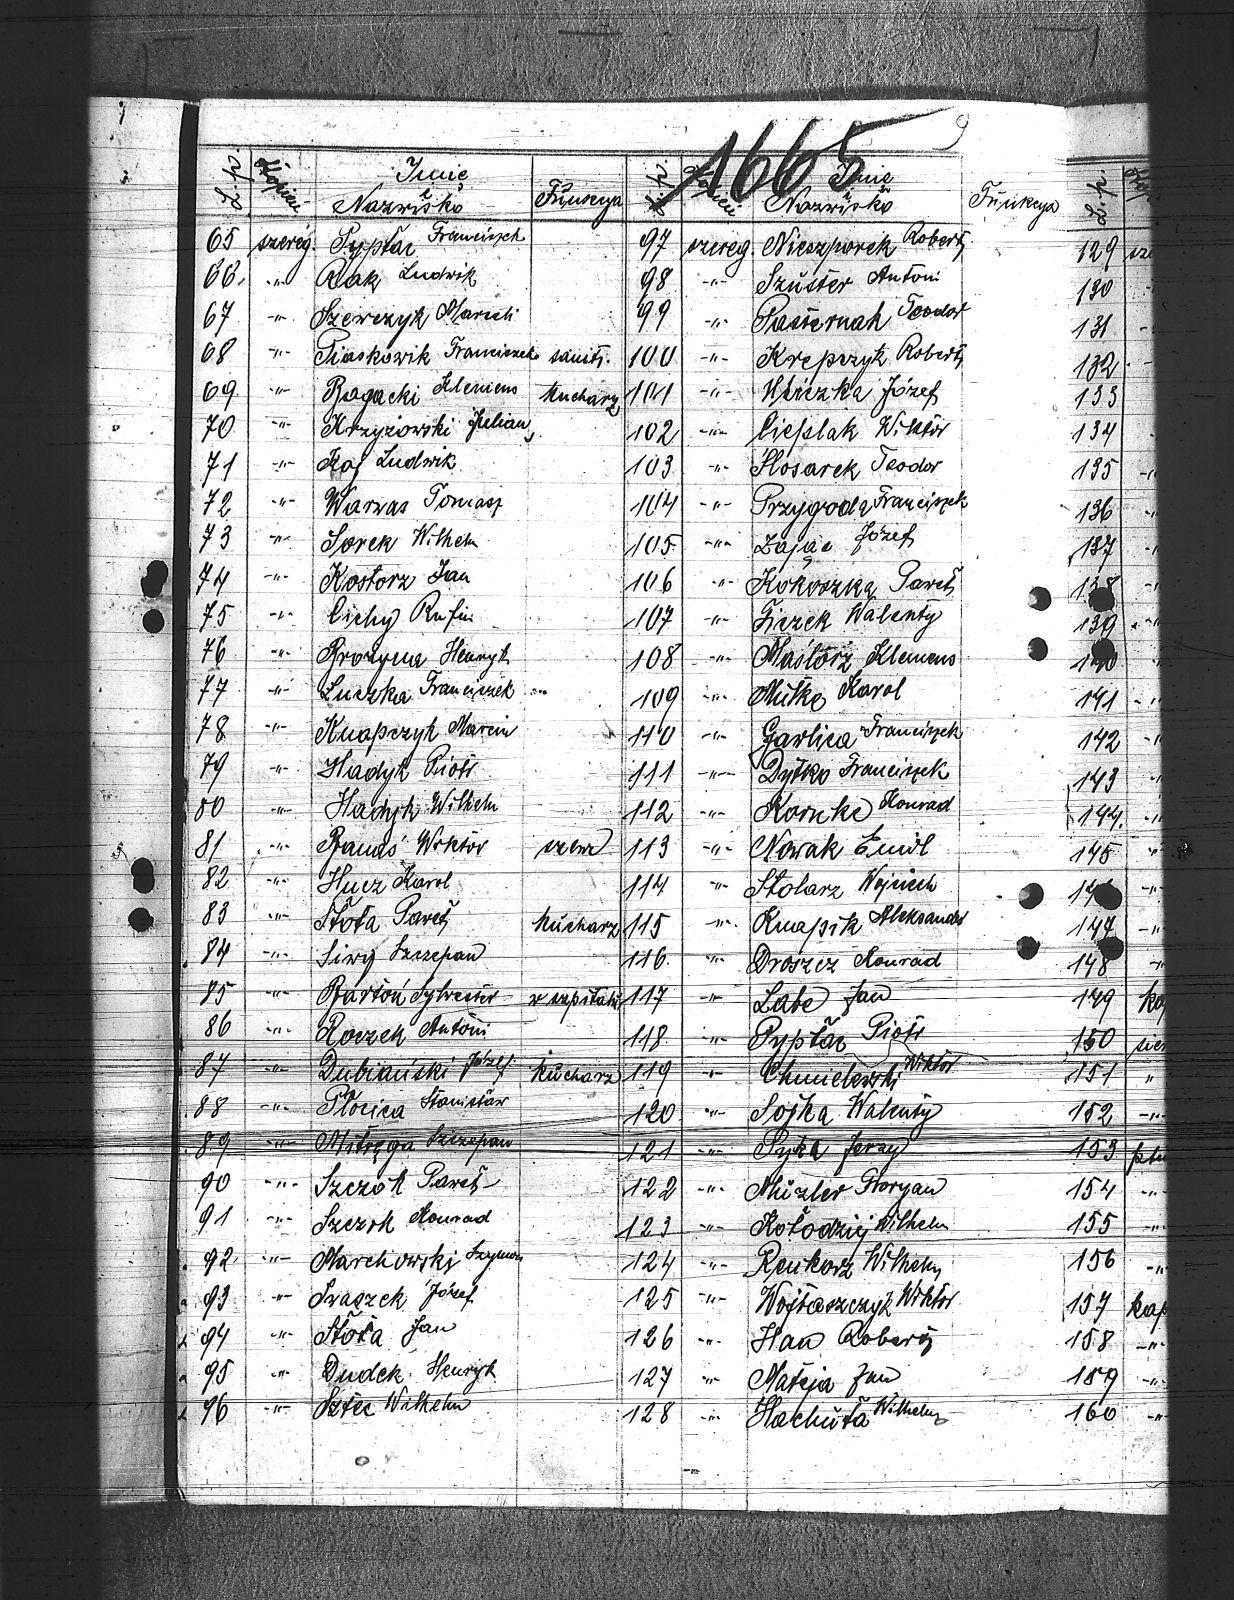 1665
L.p. Stopień Imię Nazwisko Funkcya L.p. Stopień Imię Nazwisko Funkcya L.p.
65 szereg. Pyptac Franciszek 97 szereg. Nieszporek Robert 129
66. -"- Rak Ludwik 98 -"- Szuster Antoni 130
67 -"- Szewczyk Marceli 99 -"- Pasternak Teodor 131
68 -"- Piaskowik Franciszek sanit. 100 -"- Krepczyk Robert 132
69 -"- Bogacki Klemens kucharz 101 -"- Józef 133
70 -"- Krzyżowski Julian 102 -"- Cieplak Wiktor 134
71 -"- Ludwik 103 -"- Ślosarek Teodor 135
72 -"- Warwas Tomasz 104 -"- Przygoda Franciszek 136
73 -"- Sorek Wilhelm 105 -"- Zając Józef 137
74 -"- Kostorz Jan 106 -"- Kokoszka Paweł 138
75 -"- Cichy Rufin 107 -"- Ficzek Walenty 139
76 -"- Brozyna Henryk 108 -"- Mastorz Klemens 140
77 -"- Luczka Franciszek 109 -"- Mitko Karol 141
78 -"- Knapczyk Marcin 110 -"- Garlica Franciszek 142
79 -"- Hadyk Piotr 111 -"- Dytko Franciszek 143
80 -"- Hadyk Wilhelm 112 -"- Kornke Konrad 144.
81 -"- Banaś Wiktor szewc 113 -"- Nowak Emil 145
82 -"- Hucz Karol 114 -"- Stolarz Wojciech
83 -"- Stoła Paweł kucharz 115 -"- Knapik Aleksander 147
84 -"- Siwy Szczepan 116 -"- Droszcz Konrad 148
85 -"- Bartoń Sylwester w szpitalu 117 -"- Labe Jan 149
86 -"- Roczek Antoni 118 -"- Pyptac Piotr 150
87 -"- Dubiański Józef kucharz 119 -"- Chmielewski Wiktor 151 "
88 -"- Płocica Stanisław 120 -"- Sojka Walenty 152 -"-
89 -"- Mitręga Szczepan 121 -"- Syka Jerzy 153
90 -"- Szczok Paweł 122 -"- Mizler Floryan 154 -"-
91 -"- Szczok Konrad 123 -"- Kołodziej Wilhelm 155 -"-
92 -"- Marchowski Szymon 124 -"- Renkorz Wilhelm 156 -"-
93 -"- Praszek Józef 125 -"- Wojtaszczyk Wiktor 157 kap
94 -"- Stoła Jan 126 -"- Han Robert 158 -"-
95 -"- Dudek Henryk 127 -"- Mateja Jan 159 -"-
96 -"- Sztec Wilhelm 128 -"- Hachuła Wilhelm 160 -"-